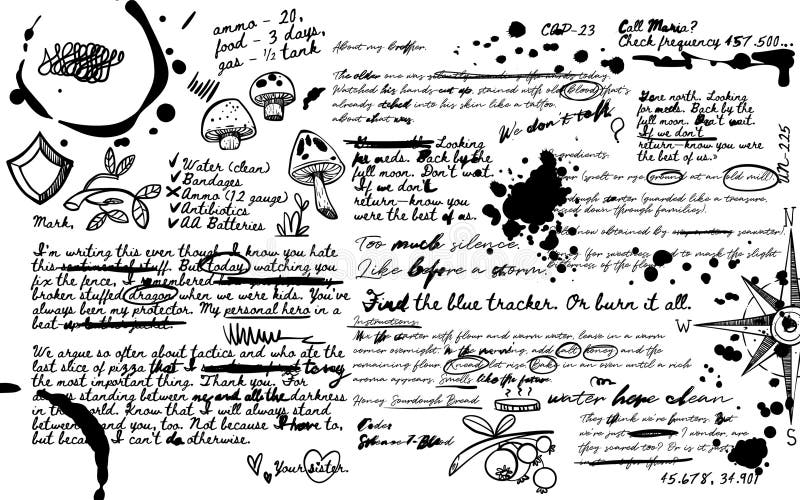 ammo - 20,
food - 3 days,
gas - 1/2 tank
About my brother.
The older one was today.
Watched his hands cut up, stained with old blood that's
already etched into his skin like a tattoo.
about what was.
We don't talk
?
COD-23
Call Maria?
Check frequency 457.500...
Gone north. Looking
for meds. Back by the
full moon. Don't wait.
If we don't
return—know you were
the best of us.
UN-225
Water (clean)
Bandages
Ammo (12 gauge)
Antibiotics
AA Batteries
Looking
for meds. Back by the
full moon. Don't wait.
If we don't
return—know you
were the best of us.
Ingredients:
(spelt or rye ground at an old mill)
starter (guarded like a treasure,
passed down through families).
obtained by seawater
(for sweetness and to mask the slight
bitterness of the flour)
Too much silence.
Like before a storm.
Find the blue tracker. Or burn it all.
Mark,
I'm writing this even though I know you hate
this sentimental stuff. But today, watching you
fix the fence, I remembered
broken stuffed dragon when we were kids. You've
always been my protector. My personal hero in a
beat-up leather jacket.
We argue so often about tactics and who ate the
last slice of pizza that I to say
the most important thing. Thank you. For
always standing between me and all the darkness
in the world. Know that I will always stand
between and you, too. Not because I have to,
but because I can't do otherwise.
Your sister.
Instructions:
Mix the starter with flour and warm water, leave in a warm
corner overnight. In the morning, add salt, honey and the
remaining flour. Knead, let rise. Bake in an oven until a rich
aroma appears. Smells like the future.
Honey Sourdough Bread
Codes
7-Blood
water hope clean
They think we're hunters. But
we're just I wonder, are
they scared too? Or is it just
45.678, 34.901
N
W
S